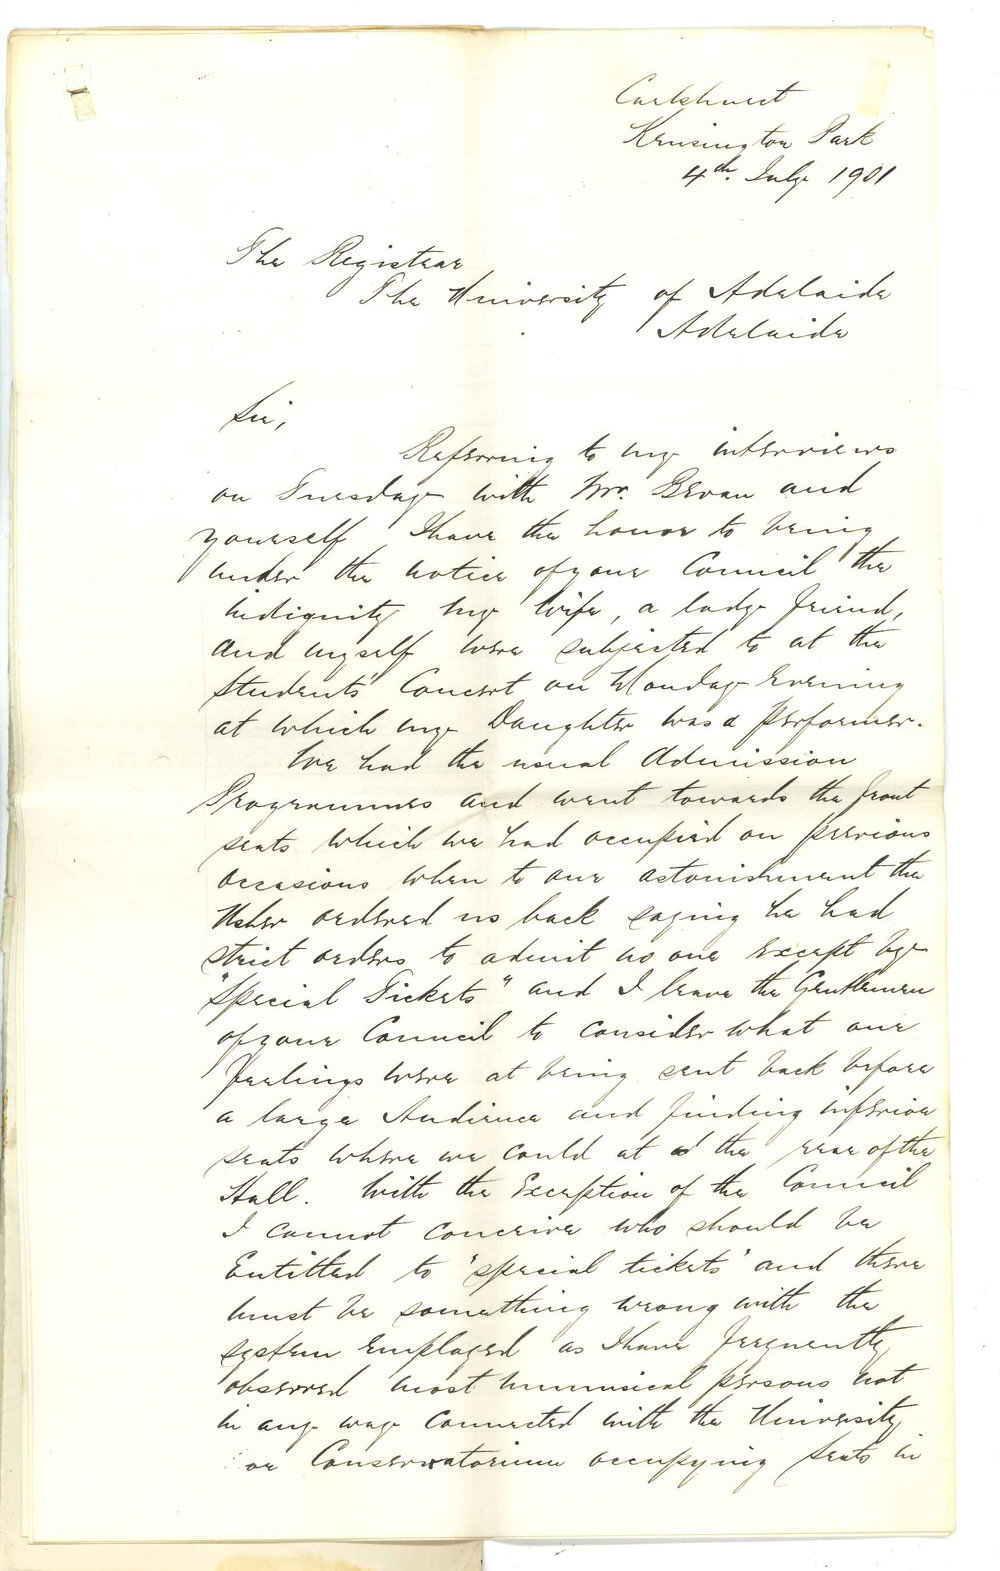 Kensington Park
4th. July 1901
The Registrar
The University of Adelaide
Adelaide
Sir,
Referring to my interviews
on Tuesday with Mr. Bevan and
yourself I have the honor to bring
under the notice of your Council the
indignity my wife, a lady friend,
and myself were subjected to at the
Students' Concert on Monday Evening
at which my Daughter was a performer.
We had the usual Admission
Programmes and went towards the front
seats which we had occupied on previous
occasions when to our astonishment the
Usher ordered us back saying he had
strict orders to admit no one except by
"Special Tickets" and I leave the Gentlemen
of your Council to consider what our
feelings were at being sent back before
a large Audience and finding inferior
seats where we could at the rear of the
Hall. With the Exception of the Council
I cannot conceive who should be
Entitled to "special tickets" and there
must be something wrong with the
system employed as I have frequently
observed most unmusical persons not
in any way connected with the University
or Conservatorium occupying seats in